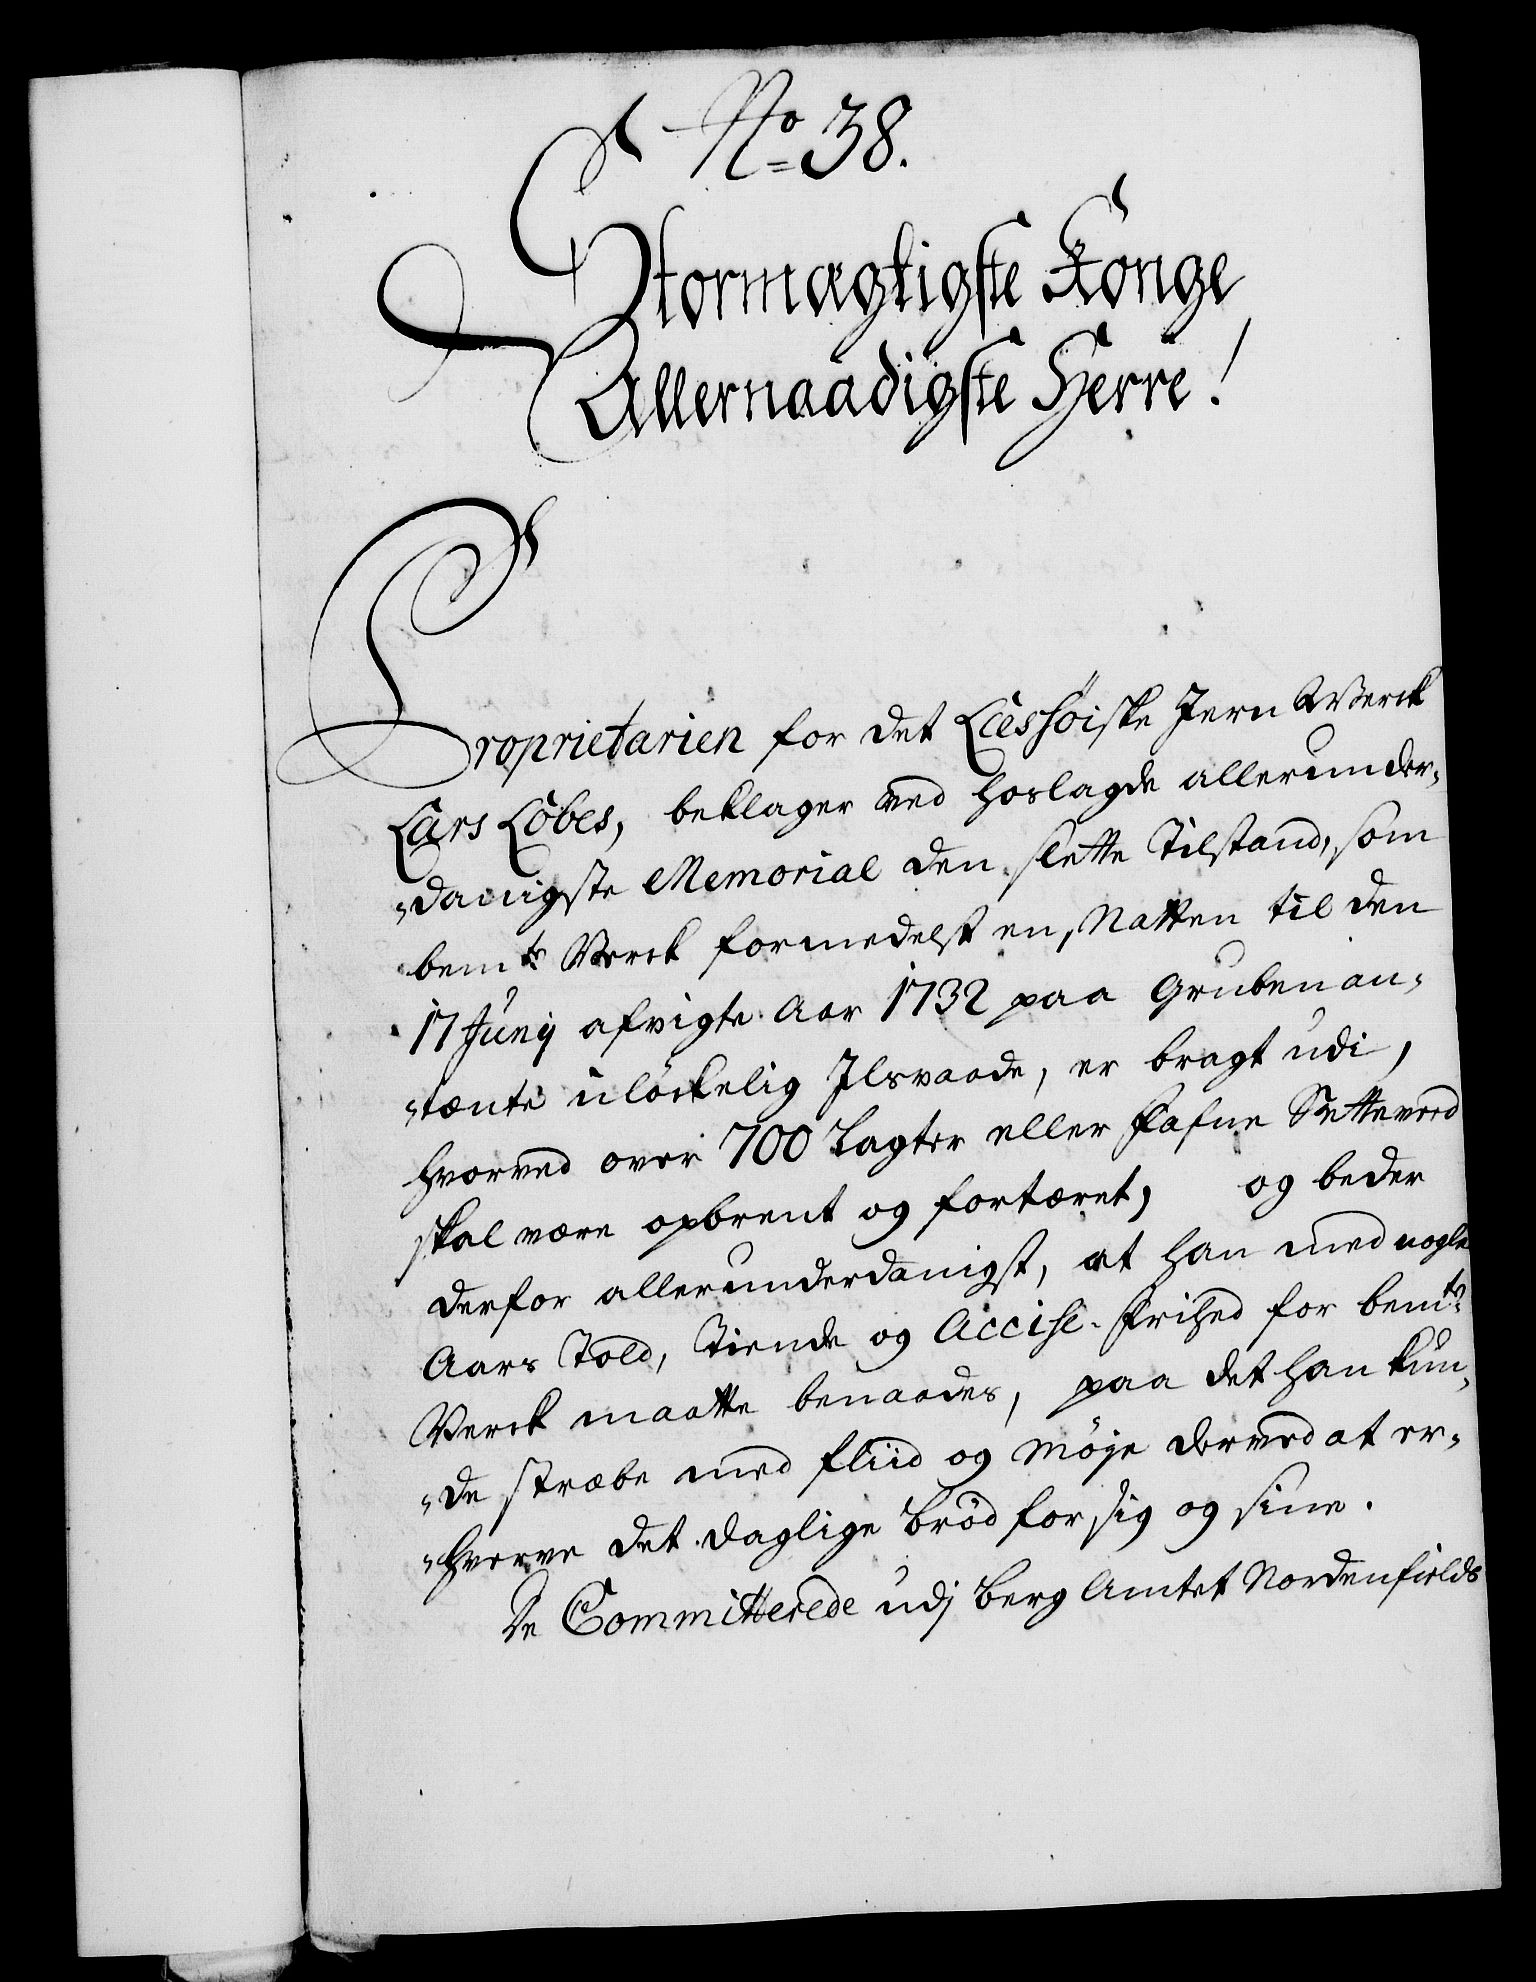 No 38.
Stormægtigste Konge
Allernaadigste Herre!
Proprietarien for det Læssöiske Jern Werck
Lars Löbes, beklager ved hoslagde allerunder-
danigste Memorial den slette Tilstand, som
bemte Verck formedelst en, Natten til den
17 Junij afvigte Aar 1732 paa Gruben an-
tænte ulöckelig Ilsvaade, er bragt udi,
hvorved over 700 Lagter eller Fafne Setteveed
skal være opbrent og fortæret, og beder
derfor allerunderdanigst, at han med nogle
Aars Told, Tiende og Accise-frihed for bemte
Verck maatte benaades, paa det han kun-
de stræbe med fliid og Möje derved at er-
hverve det daglige Bröd for sig og sine.
De Committerede udj Berg Amtet Nordenfields